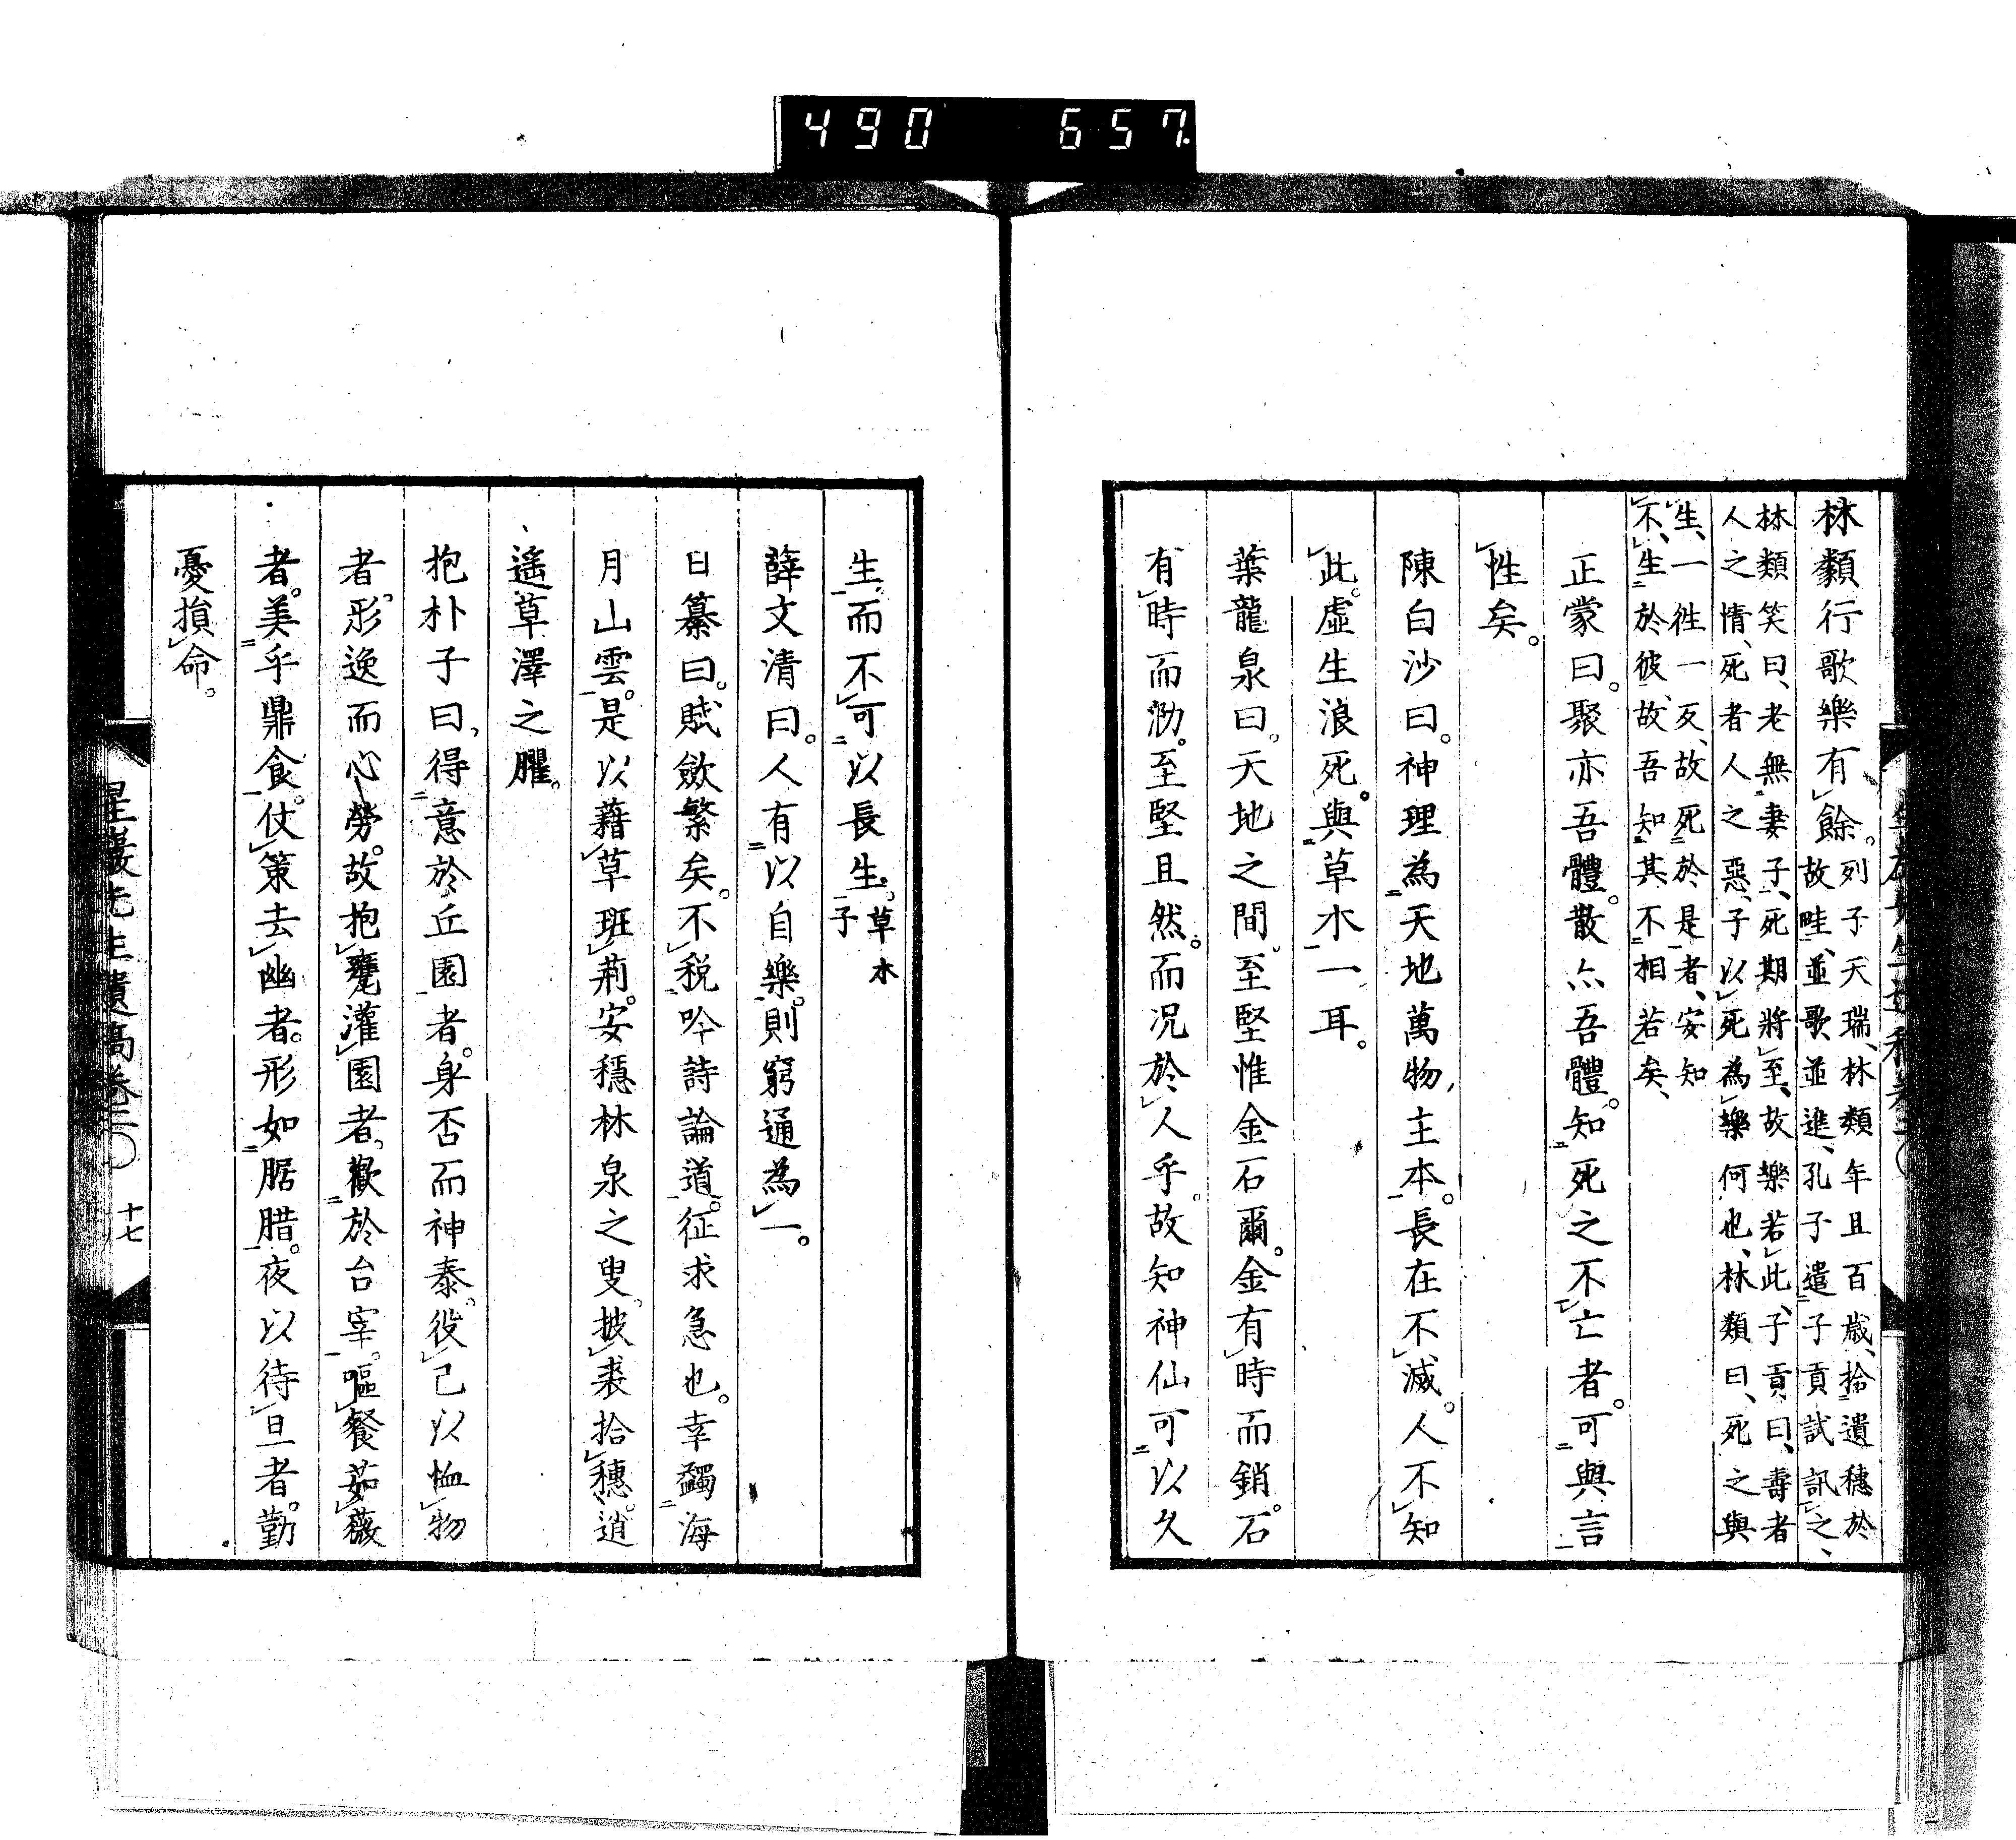 490 657
林類行歌樂有餘。列子天瑞、林類年且百歲、拾遺穗於
故畦、並歌並進、孔子遣子貢試訊之、
林類笑曰、老無妻子、死期將至、故樂若此、子貢曰、壽者
人之情、死者人之惡、子以死為樂何也、林類曰、死之與
生、一徃一反、故死於是者、安知
不生於彼、故吾知其不相若矣、
正蒙曰。聚亦吾體。散亦吾體。知死之不亡者。可與言
性矣。
陳白沙曰。神理為天地萬物主本。長在不滅。人不知
此。虛生浪死。與草木一耳。
葉龍泉曰。天地之間。至堅惟金石爾。金有時而銷。石
有時而泐。至堅且然。而况於人乎。故知神仙可以久
生而不可以長生。草木
子
薛文清曰。人有以自樂。則窮通為一。
日纂曰。賦斂繁矣。不稅吟詩論道。征求急也。幸蠲海
月山雲。是以藉草班荊。安穩林泉之叟。披裘拾穗。逍
遙草澤之臞。
抱朴子曰、得意於丘園者。身否而神泰。役己以恤物
者。形逸而心勞。故抱甕灌園者。歡於台宰。嘔餐茹薇
者。美乎鼎食。仗策去豳者。形如腒腊。夜以待旦者。勤
憂損命。
星巖先生遺稿卷二 十七